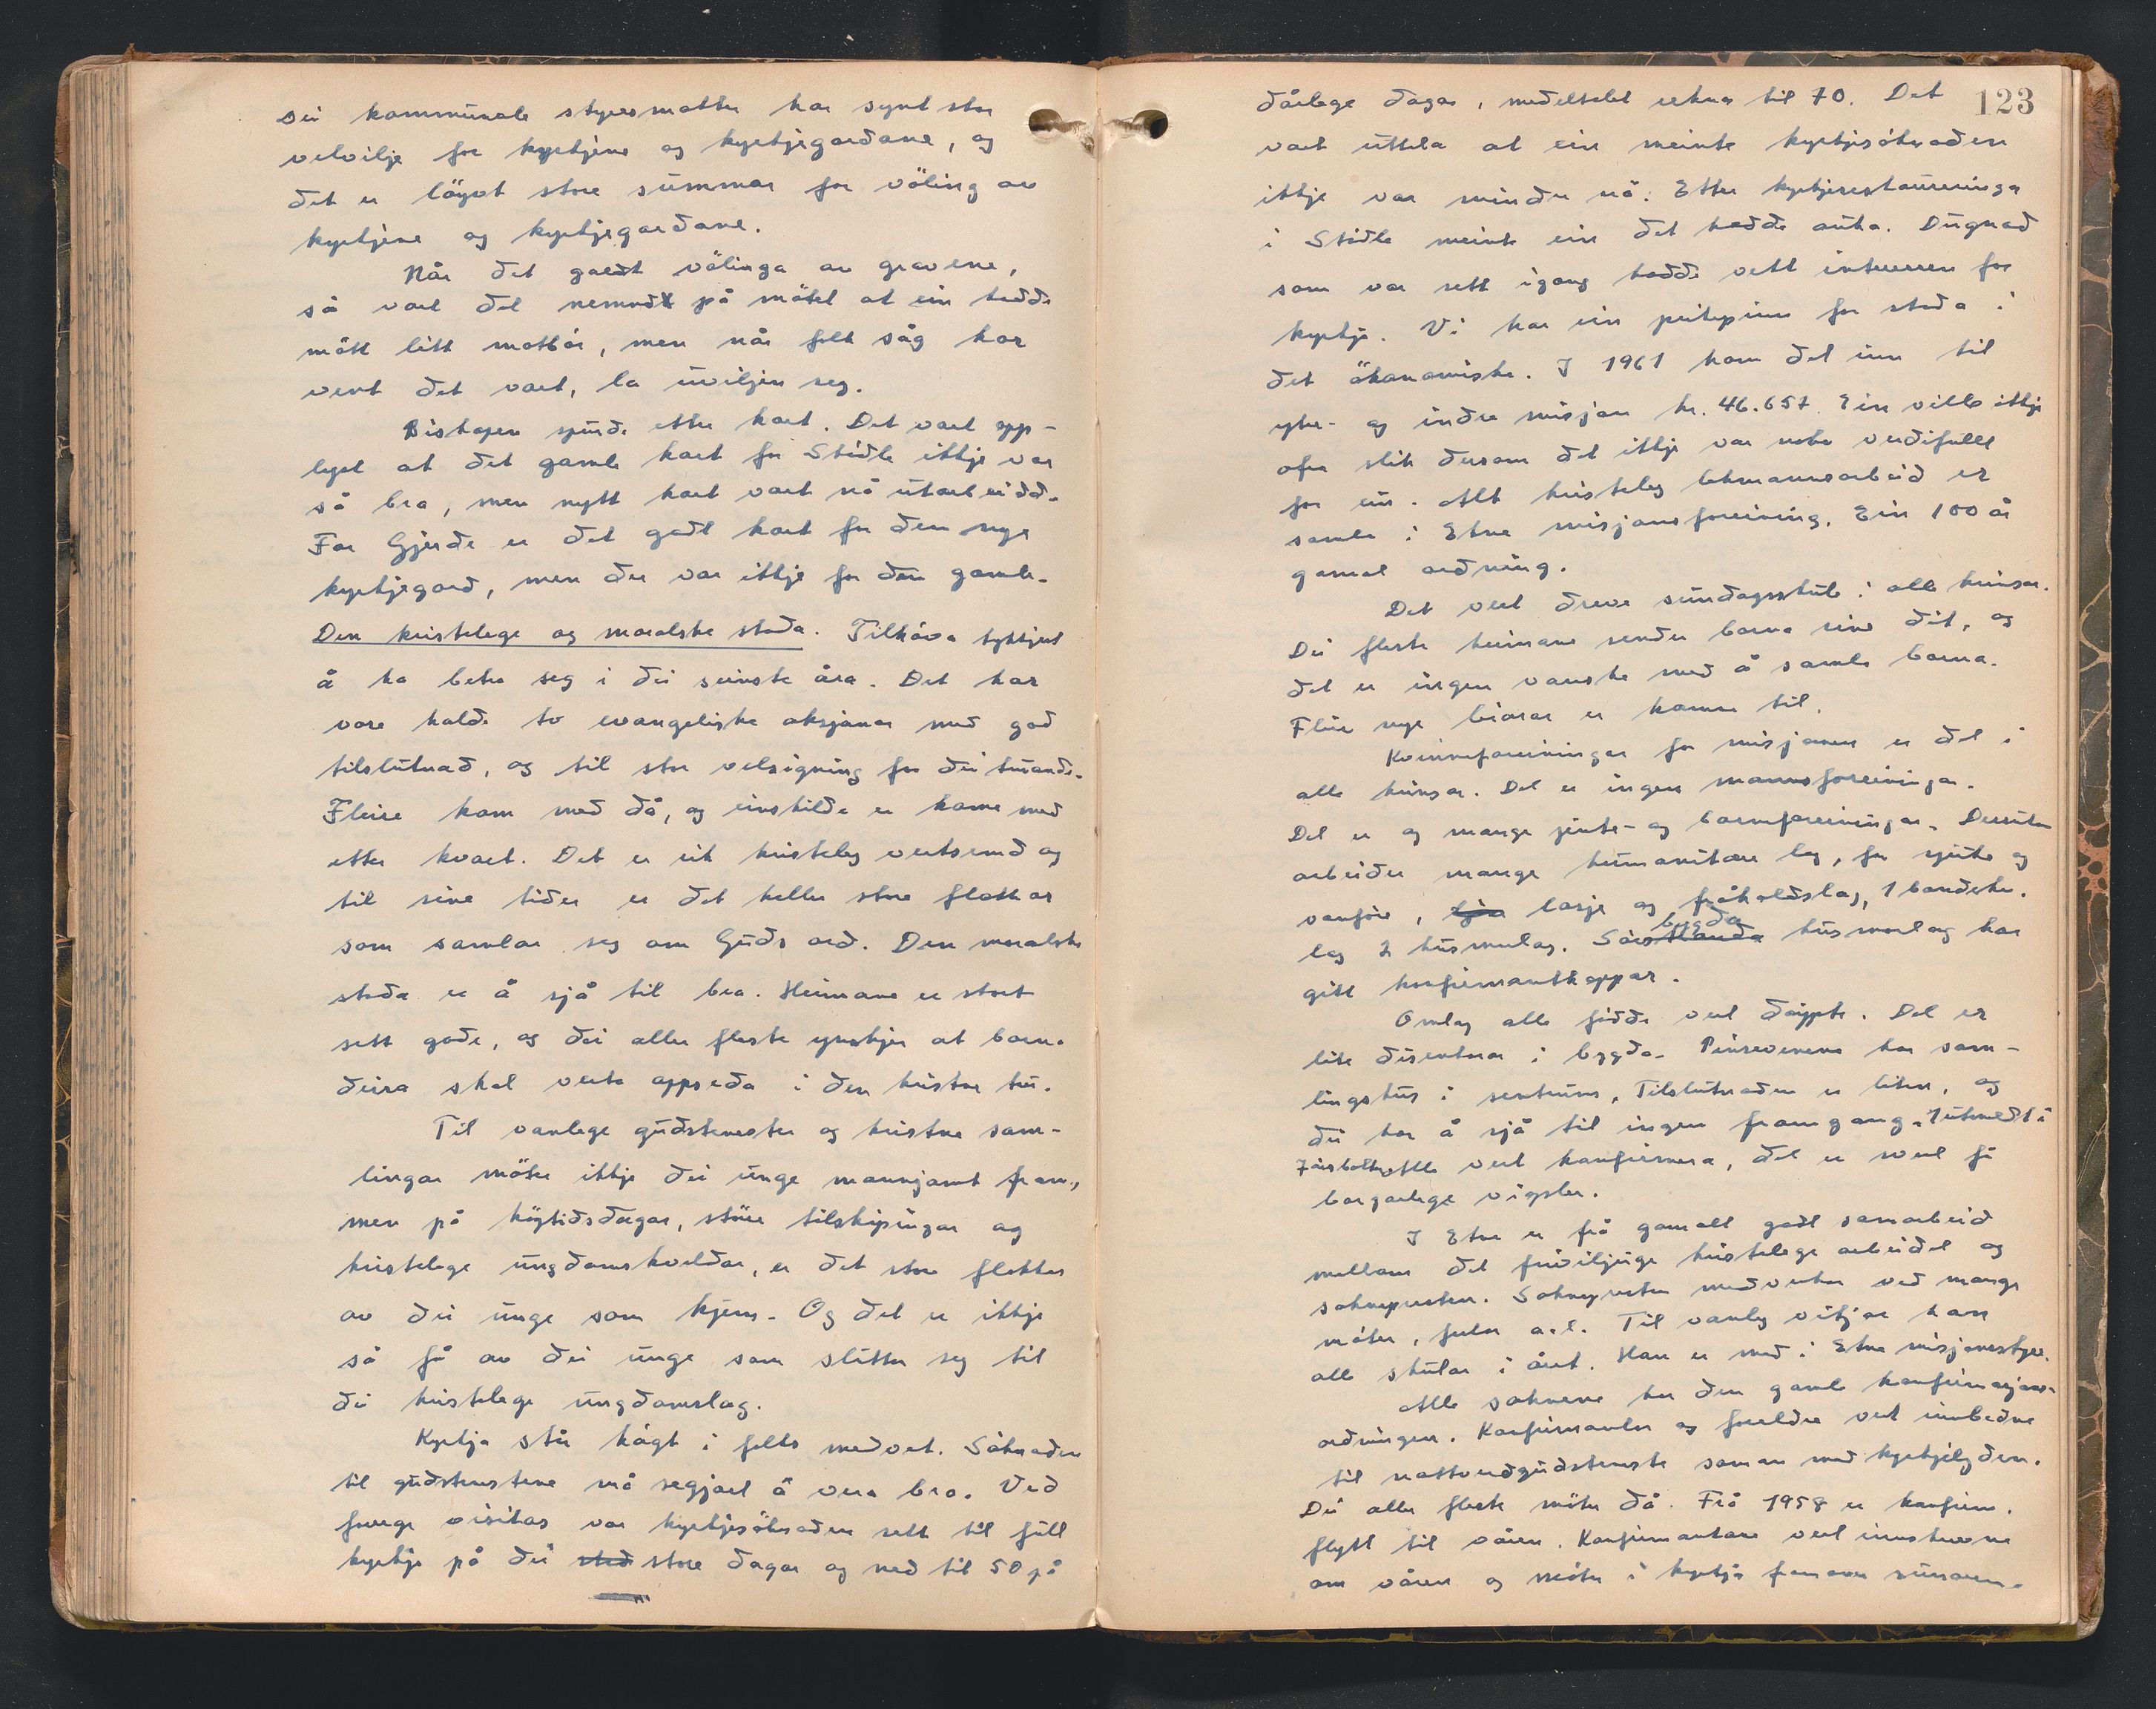 Dei kommunale styresmakter har synt stor
velvilje for kyrkjene og kyrkjegardane, og
det er løyvt store summar for vøling av
kyrkjene og kyrkjegardane.
Når det galdt vølinga av gravene,
så vart det nemndt på møtet at ein hadde
møtt litt motbør, men når folk såg kor
vent det vart, la uviljen seg.
Biskopen spurde etter kart. Det vart opp-
lyst at det gamle kart for Stødle ikkje var
så bra, men nytt kart vart nå utarbeidd.
For Gjerde er det godt kart for den nye
kyrkjegard, men der var ikkje for den gamle.
Den kristelege og moralske stoda. Tilhøva tykkjest
å ha betra seg i dei seinste åra. Det har
vore halde to evangeliske aksjonar med god
tilslutnad, og til stor velsigning for dei truande.
Fleire kom med då, og einskilde er kome med
etter kvart. Det er eit kristeleg vertsemd og
til sine tider er det heller store flokkar
som samlar seg om Guds ord. Den moralske
stoda er å sjå til bra. Heimane er stort
sett gode, og dei aller fleste ynskjer at borna
deira skal verta oppseda i den kristne tru.
Til vanlege gudstenester og kristne sam-
lingar møter ikkje dei unge mannjamt fram,
men på høgtidsdagar, større tilskipingar og
kristelege ungdomskveldar, er det store flokkar
av dei unge som kjem. Og det er ikkje
så få av dei unge som sluttar seg til
dei kristelege ungdomslag.
Kyrkja står høgt i folks medvet. Søknaden
til gudstenestene må segjast å vera bra. Ved
førre visitas var kyrkjesøknaden sett til full
kyrkje på dei sted store dagar og ned til 50 på
123
dårlege dagar, medeltalet rekna til 70. Det
vart uttala at ein meinte kyrkjesøknaden
ikkje var mindre nå. Etter kyrkjerestaureringa
i Stødle meinte ein det hadde auka. Dugnad
som var sett igang hadde vekt interessen for
kyrkja. Vi har ein peikepinn for stoda i
det økonomiske. I 1961 kom det inn til
ytre- og indre misjon kr. 46.657. Ein ville ikkje
ofra slik dersom det ikkje var noko verdifullt
for ein. Alt kristeleg lekmannsarbeid er
samla i Etne misjonsforeining. Ein 100 år
gamal ordning.
Det vert dreve sundagsskule i alle krinsar.
Dei fleste heimane sender borna sine dit, og
det er ingen vanske med å samle borna.
Fleire nye lærarar er komne til.
Kvinneforeiningar for misjonen er det i
alle krinsar. Det er ingen mannsforeiningar.
Det er og mange jente- og barneforeiningar. Dessutan
arbeider mange humanitære lag, for sjuke og
vanføre, losje og fråhaldslag, 1 bondekv.
lag 2 husmorlag. Sørstranda bygda husmorlag har
gitt konfirmantkappar.
Omlag alle fødde vert døypte. Det er
lite disentarar i bygda. Pinsevenene har sam-
lingshus i sentrum. Tilslutnaden er liten, og
dei har å sjå til ingen framgang. 1 utmeldt i
7 års bolken. Alle vert konfirmera, det er svert få
borgarlege vigsler.
I Etne er frå gamalt godt samarbeid
mellom det friviljuge kristelege arbeidet og
soknepresten. Soknepresten medverkar ved mange
møter, fester o.l. Til vanleg vitjar han
alle skular i året. Han er med i Etne misjonsstyre.
Alle soknene har den gamle konfirmasjons-
ordningen. Konfirmantar og foreldre vert innbedne
til nattverdgudsteneste saman med kyrkjelyden.
Dei aller fleste møter då. Frå 1958 er konfirm.
flytt til våren. Konfirmantane vert innskrevne
om våren og møter i kyrkja framover sumaren.